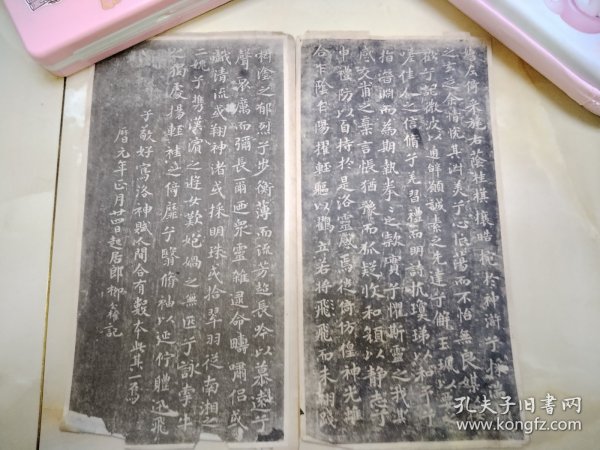 嬉左倚采旄右蔭桂旗攘皓腕於神滸兮采湍
之玄芝余情悅其淑美兮心振蕩而不怡無良媒
歡兮託微波以通辭願誠素之先達兮解玉珮以要
嗟佳人之信脩兮羌習禮而明詩抗瓊珶以和予兮
指潛淵而為期執拳之款實兮懼斯靈之我欺
感交甫之棄言悵猶豫而狐疑收和顏以靜志兮
申禮防以自持於是洛靈感焉徙倚仿偟神光離
合乍陰乍陽擢輕軀以鶴立若將飛而未翔踐
椒塗之郁烈兮步衡薄而流芳超長吟以慕遠兮
聲哀厲而彌長爾迺眾靈雜遝命疇嘯侶或
戲清流或翔神渚或採明珠或拾翠羽從南湘之
二姚兮攜漢濱之遊女歎匏媧之無匹兮詠牽牛
之獨處揚輕袿之倚靡兮翳脩袖以延佇體迅飛
子敬好寫洛神賦人間合有數本此其一焉
曆元年正月廿四日起居郎柳權記
孔夫子旧书网
www.kongfz.com